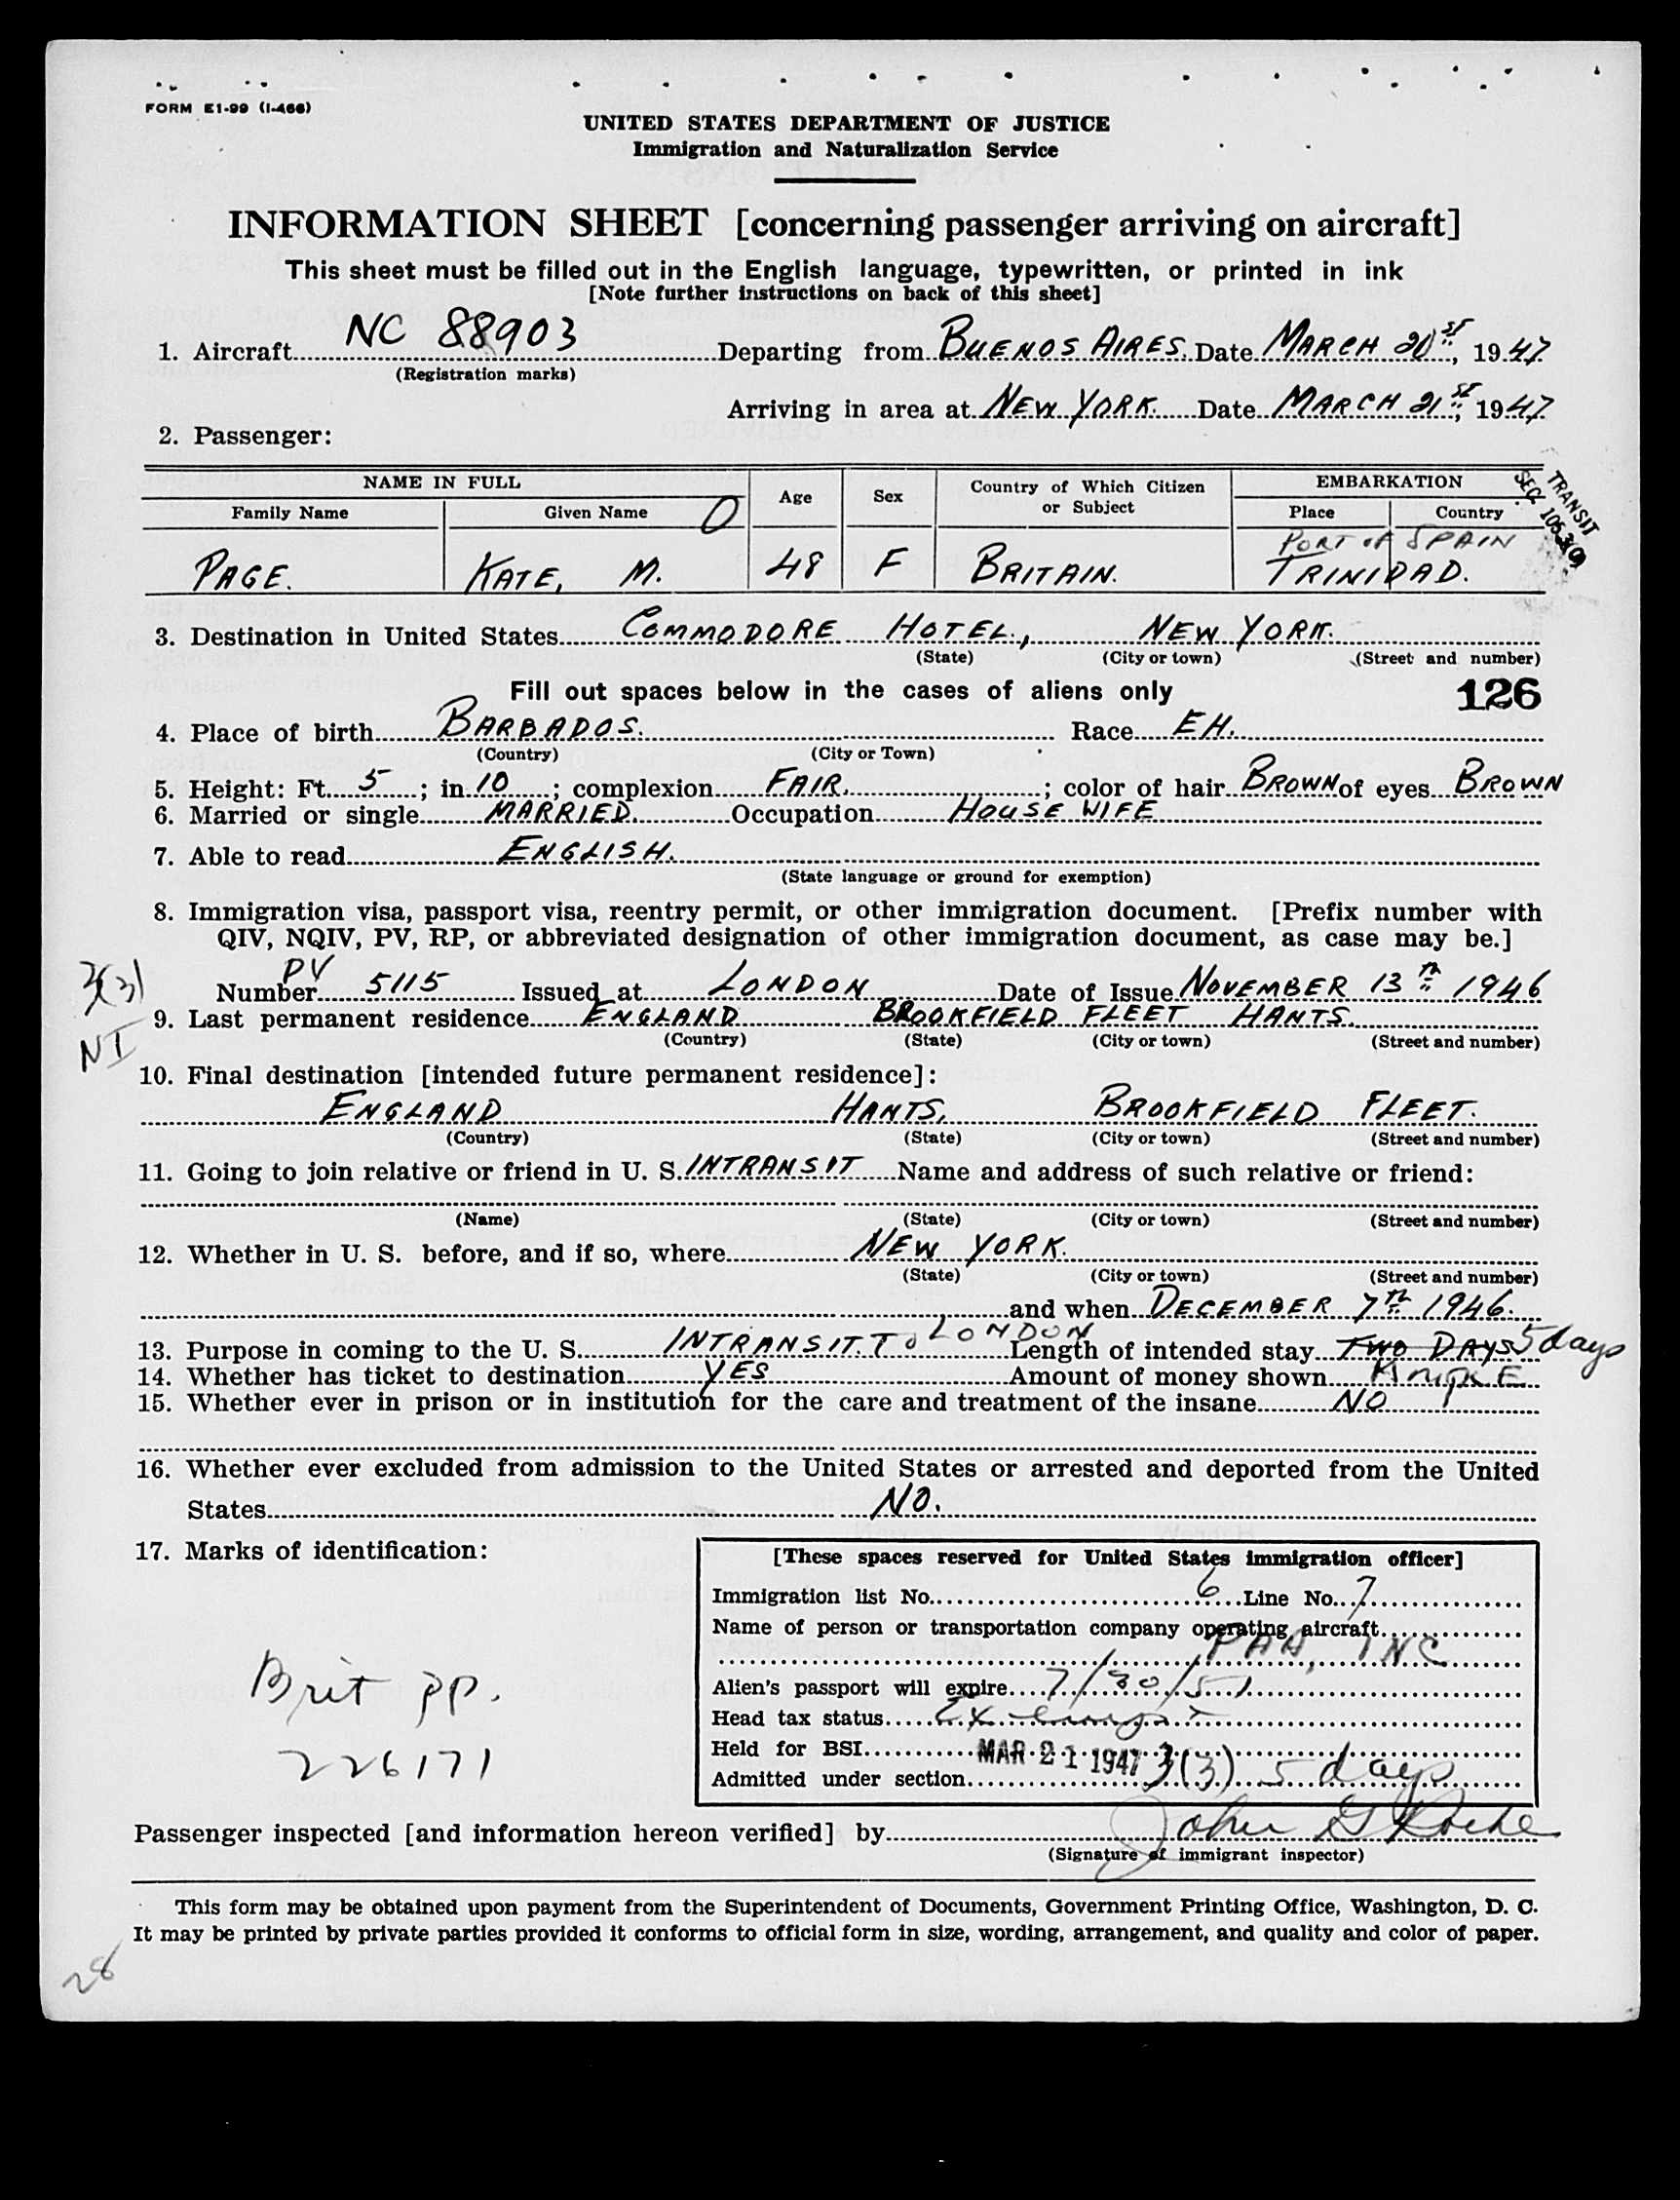 FORM E1-99 (I-466)
UNITED STATES DEPARTMENT OF JUSTICE
Immigration and Naturalization Service
INFORMATION SHEET [concerning passenger arriving on aircraft]
This sheet must be filled out in the English language, typewritten, or printed in ink
[Note further instructions on back of this sheet]
1. Aircraft NC 88903 Departing from BUENOS AIRES. Date MARCH 20st, 1947
(Registration marks)
Arriving in area at NEW YORK. Date MARCH 21st, 1947
2. Passenger:
NAME IN FULL Age Sex Country of Which Citizen or Subject EMBARKATION
Family Name Given Name Place Country
TRANSIT
SEC.
PORT OF SPAIN
PAGE. KATE, M. 48 F BRITAIN. TRINIDAD.
3. Destination in United States COMMODORE HOTEL, NEW YORK.
(State) (City or town) (Street and number)
Fill out spaces below in the cases of aliens only 126
4. Place of birth BARBADOS. Race EH.
(Country) (City or Town)
5. Height: Ft. 5; in. 10; complexion FAIR.; color of hair BROWN of eyes BROWN
6. Married or single MARRIED. Occupation HOUSE WIFE
7. Able to read ENGLISH.
(State language or ground for exemption)
8. Immigration visa, passport visa, reentry permit, or other immigration document. [Prefix number with
QIV, NQIV, PV, RP, or abbreviated designation of other immigration document, as case may be.]
3(3)
Number PV 5115 Issued at LONDON Date of Issue NOVEMBER 13th 1946
9. Last permanent residence ENGLAND BROOKFIELD FLEET HANTS.
NI
(Country) (State) (City or town) (Street and number)
10. Final destination [intended future permanent residence]:
ENGLAND HANTS, BROOKFIELD FLEET.
(Country) (State) (City or town) (Street and number)
11. Going to join relative or friend in U. S. INTRANSIT Name and address of such relative or friend:
(Name) (State) (City or town) (Street and number)
12. Whether in U. S. before, and if so, where NEW YORK.
(State) (City or town) (Street and number)
and when DECEMBER 7th 1946.
13. Purpose in coming to the U. S. INTRANSIT. To LONDON Length of intended stay TWO DAYS 5 days
14. Whether has ticket to destination YES Amount of money shown AMPLE
15. Whether ever in prison or in institution for the care and treatment of the insane NO
16. Whether ever excluded from admission to the United States or arrested and deported from the United
States NO.
17. Marks of identification:
Brit pp.
226171
[These spaces reserved for United States immigration officer]
Immigration list No. 6 Line No. 7
Name of person or transportation company operating aircraft
PAA, INC
Alien's passport will expire 7/30/51
Head tax status Exempt
Held for BSI
MAR 21 1947
Admitted under section 3(3) 5 days
Passenger inspected [and information hereon verified] by John G Roche
(Signature of immigrant inspector)
This form may be obtained upon payment from the Superintendent of Documents, Government Printing Office, Washington, D. C.
It may be printed by private parties provided it conforms to official form in size, wording, arrangement, and quality and color of paper.
28